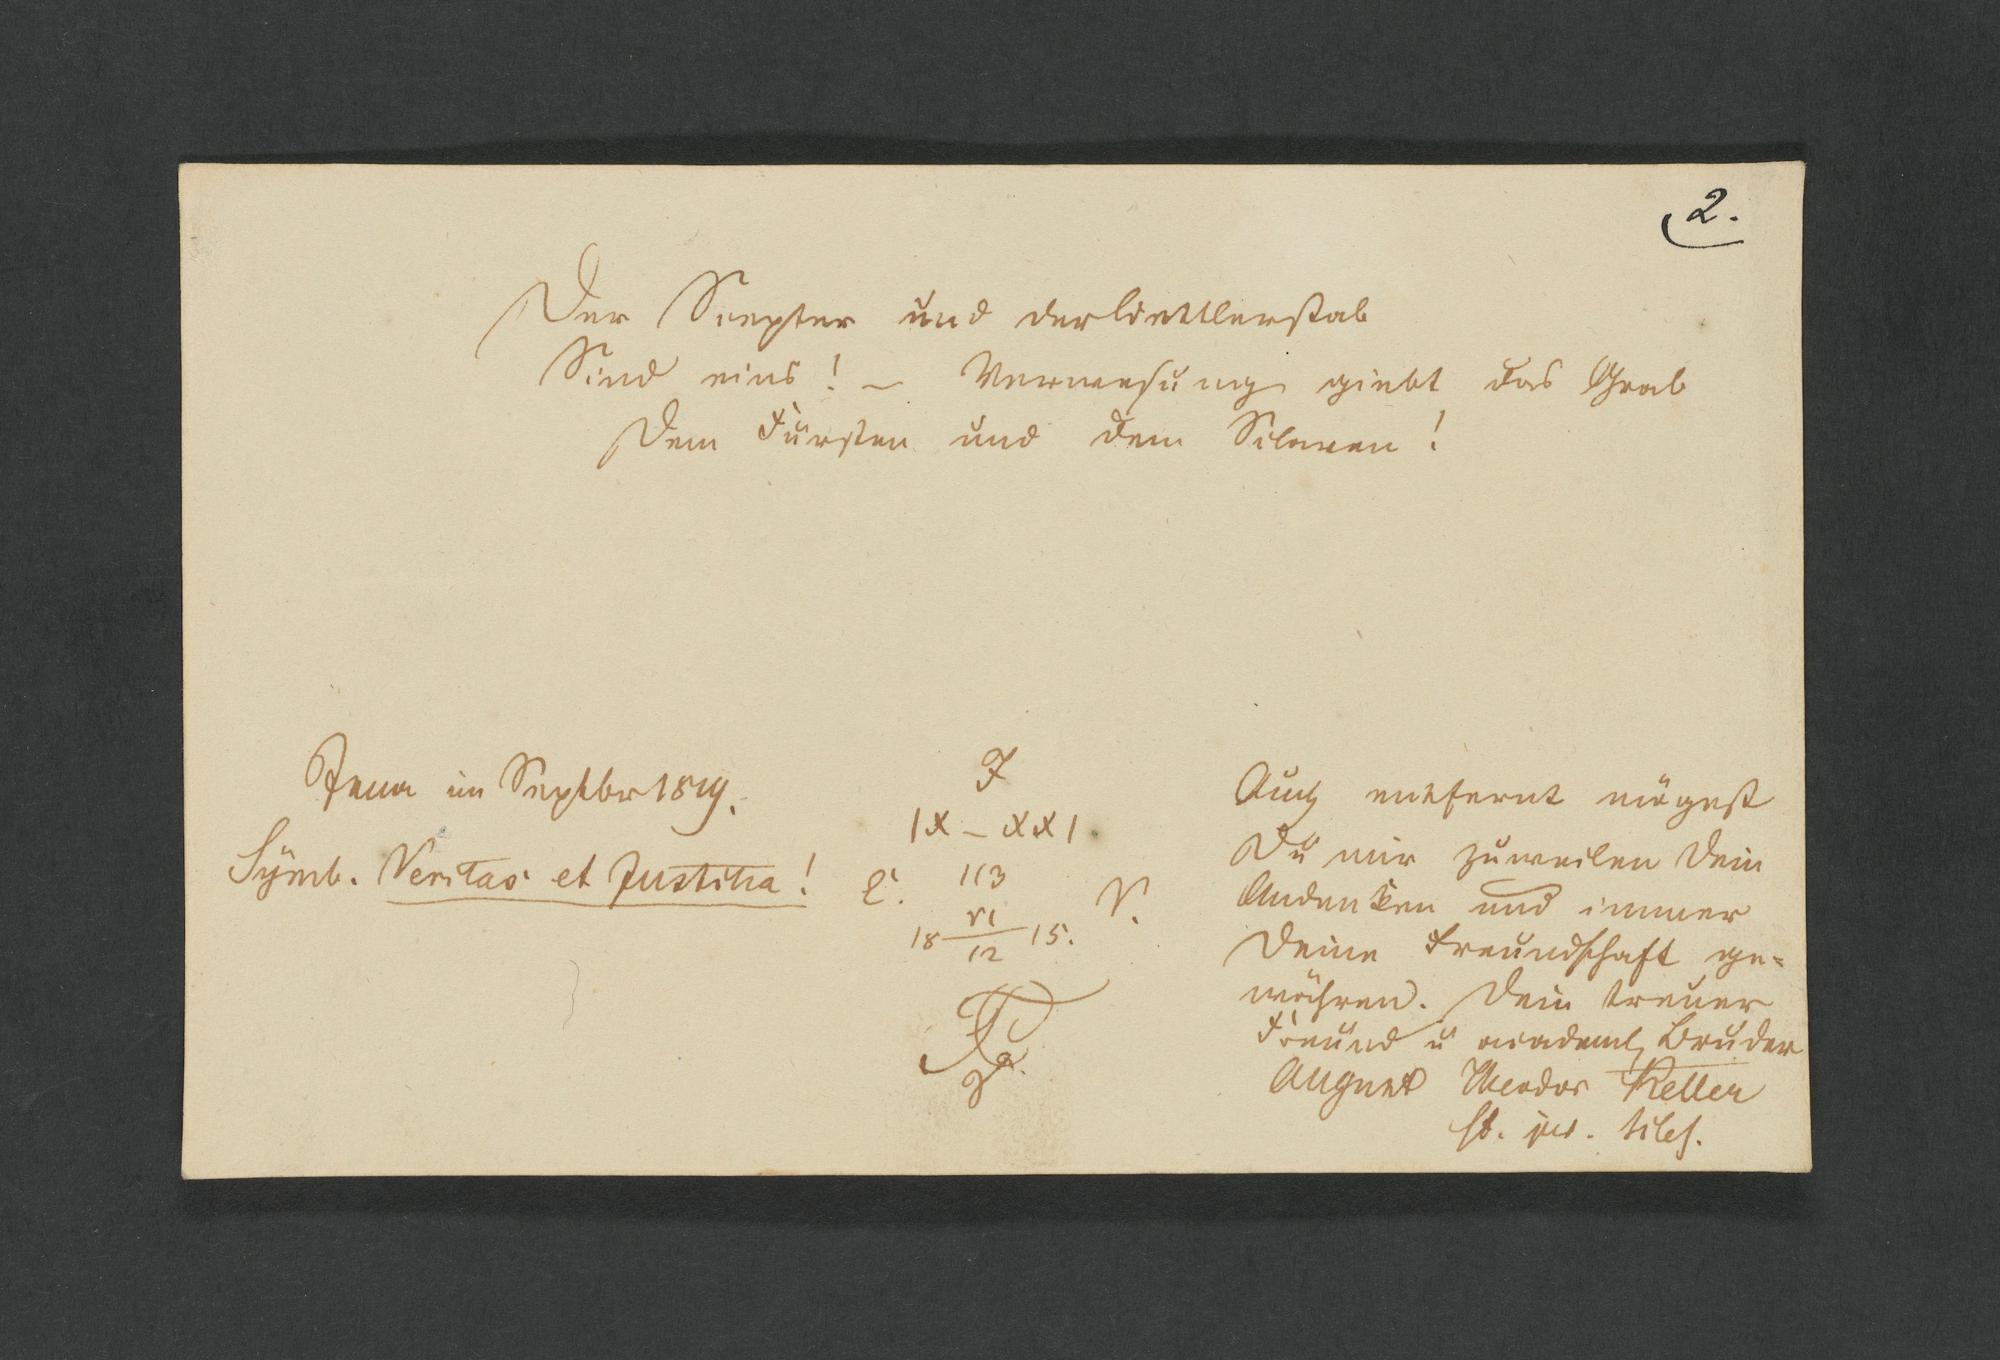 2.
Der Scepter und der Bettlerstab
Sind eins! – Verwesung giebt das Grab
Dem Fürsten und dem Sclaven!
Jena im Septbr 1819.
Symb. Veritas et Justitia!
F
IX – XXI
E. 113 V.
18 VI/12 15.
Auch entfernt mögest
Du mir zuweilen Dein
Andenken und immer
Deine Freundschaft ge-
währen. Dein treuer
Freund u academ. Bruder
August Theodor Keller
st. jur.